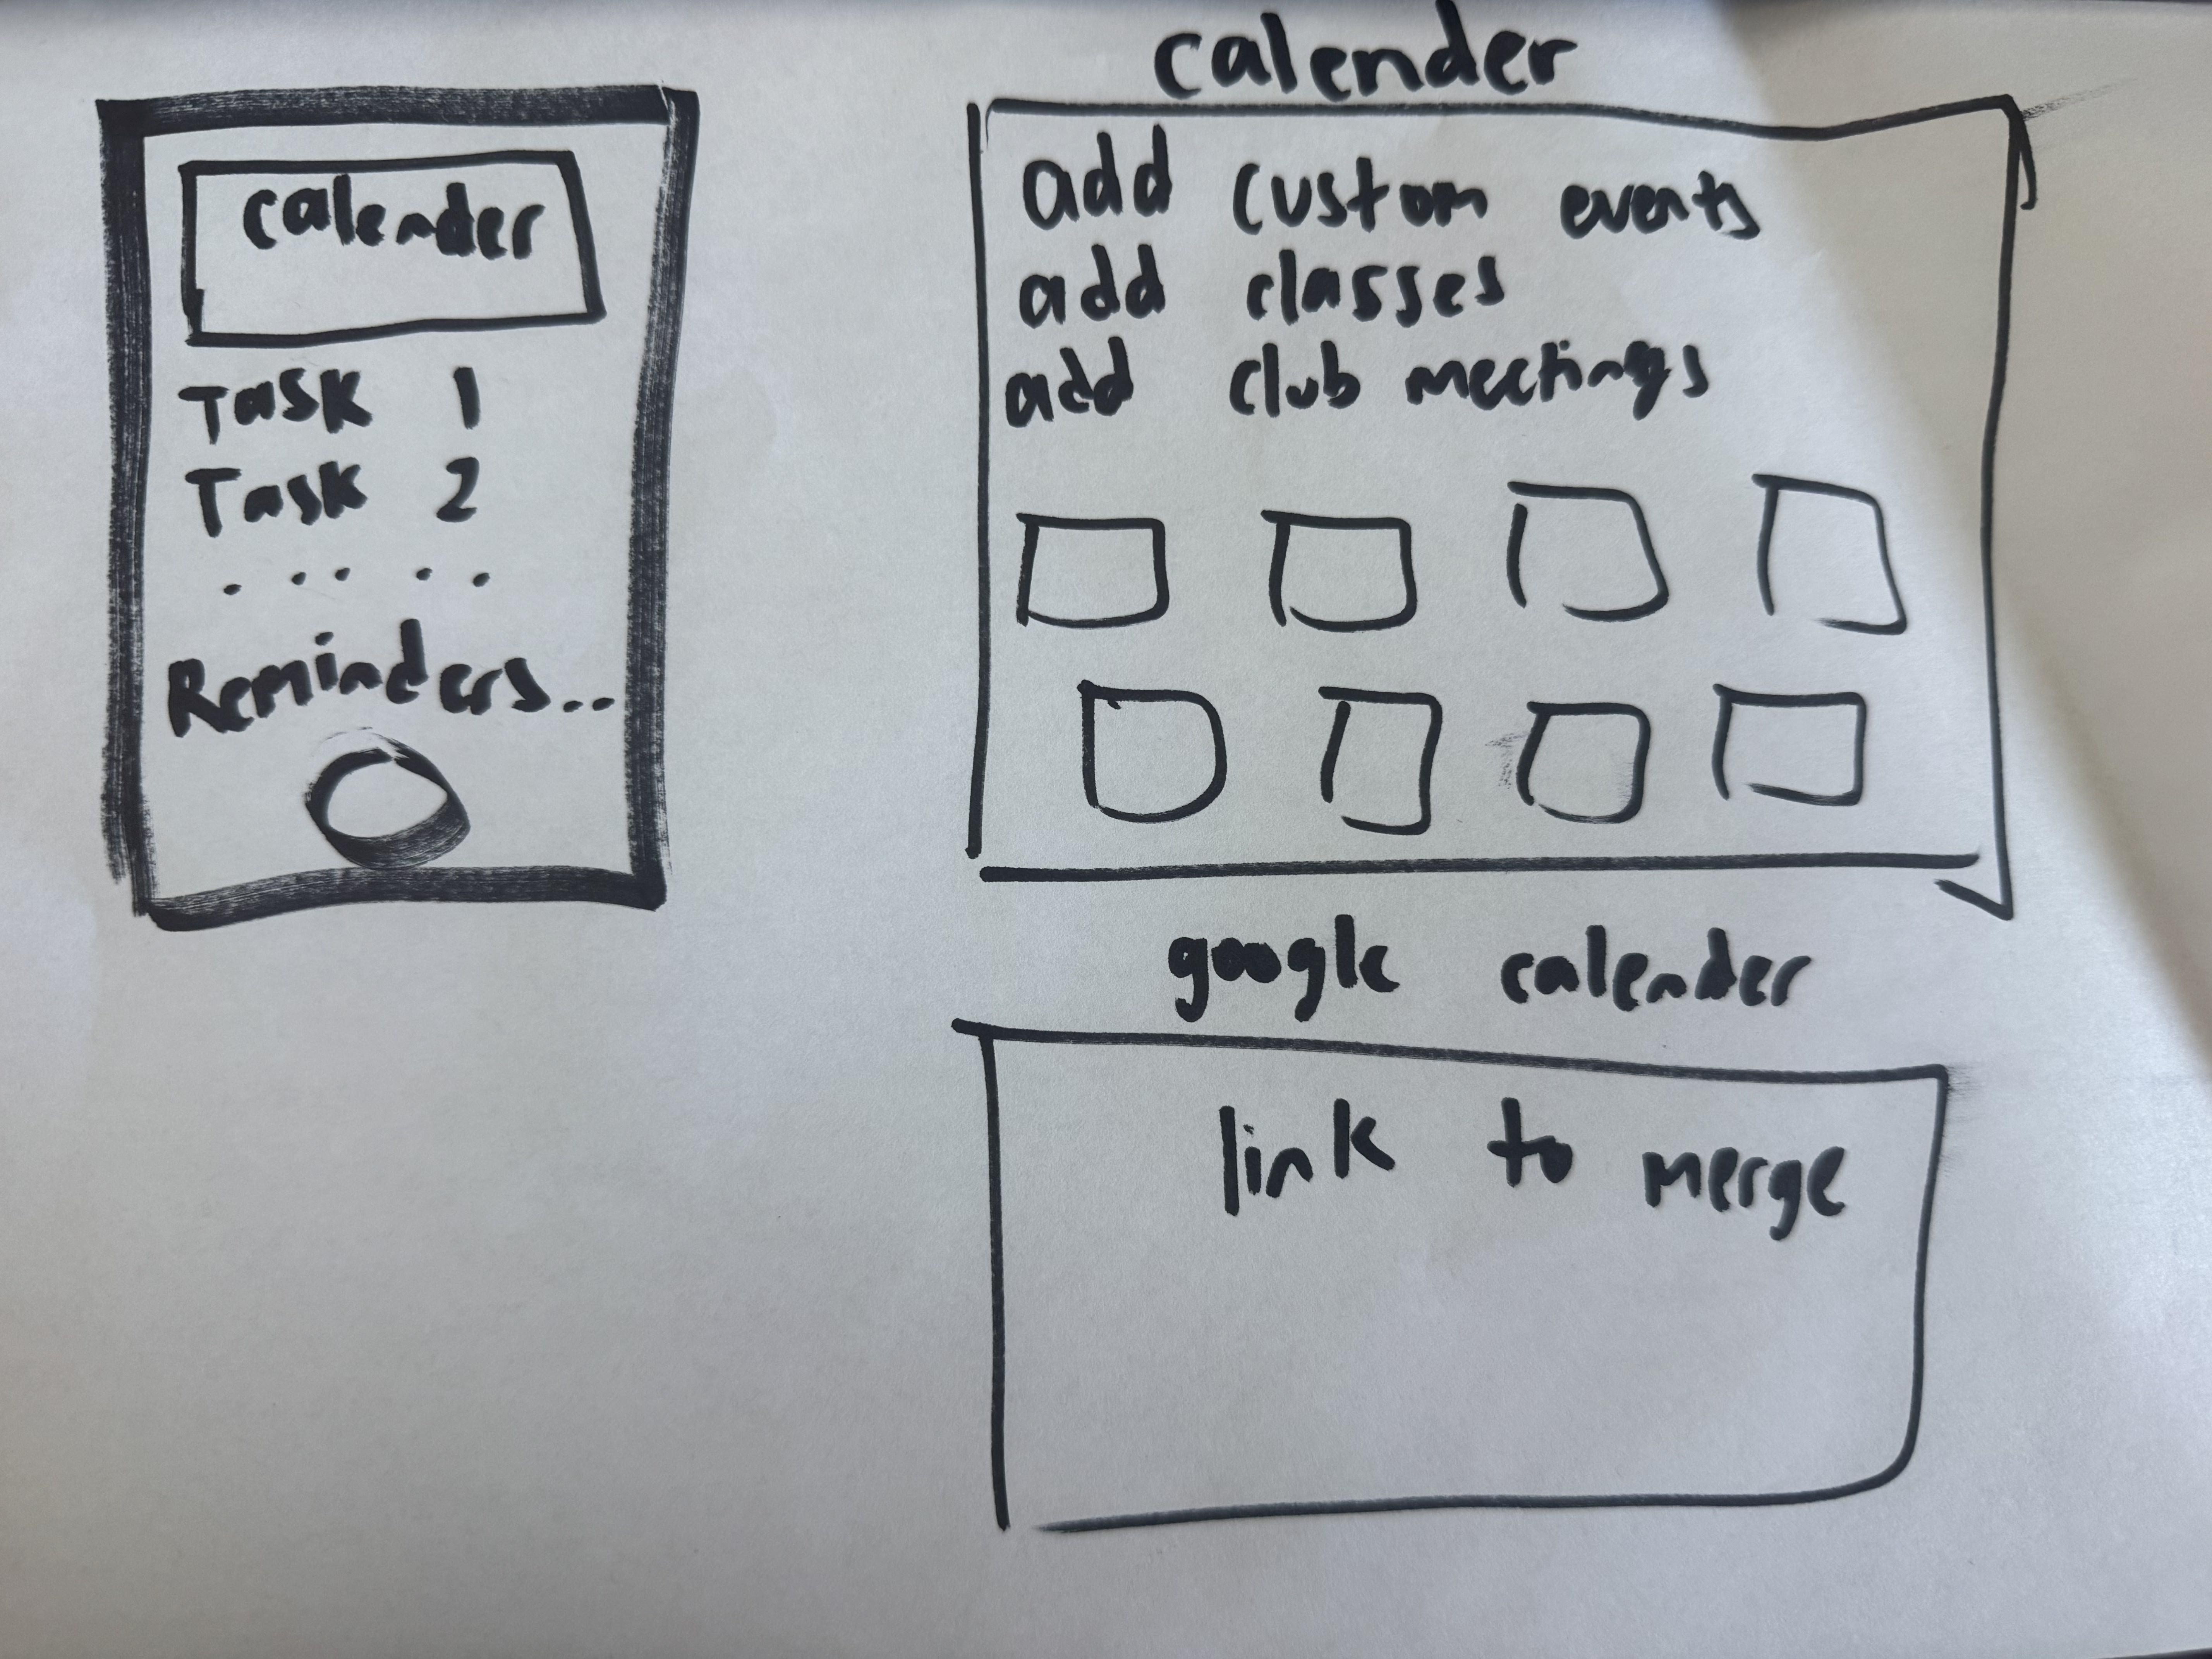 calender
Task 1
Task 2
. . . . .
Reminders..
calender
add custom events
add classes
add club meetings
google calender
link to merge